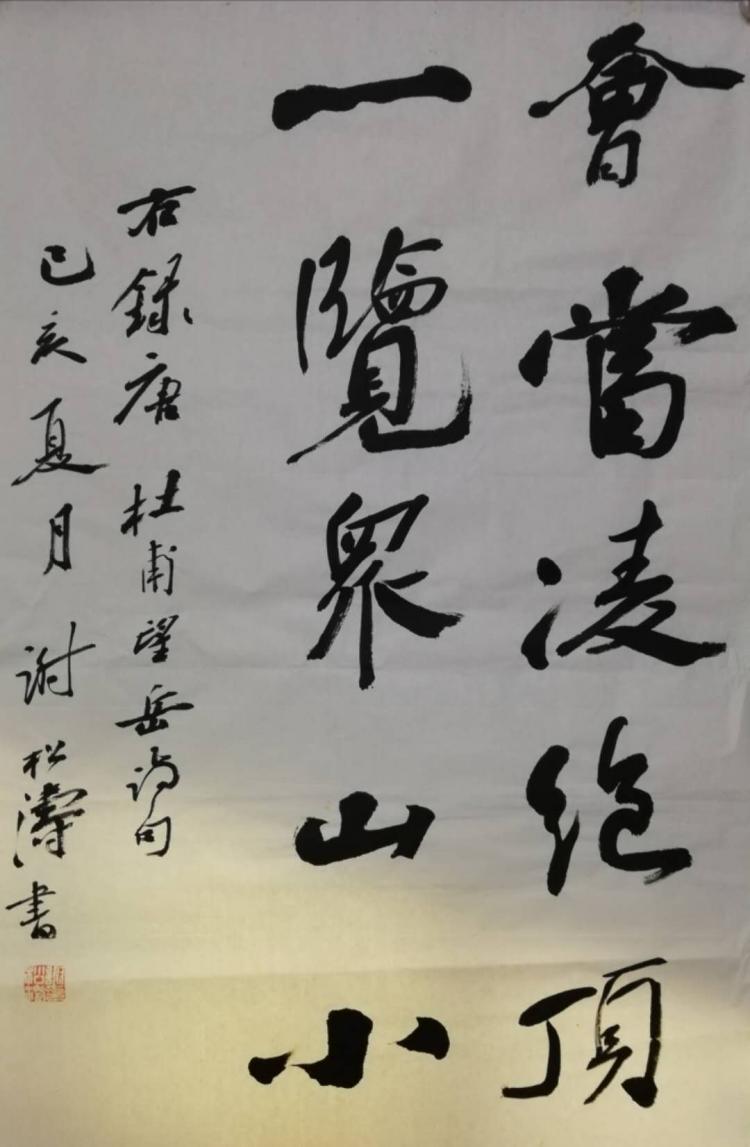 會當凌絶頂
一覽眾山小
右録唐杜甫望岳詩句
己亥夏月謝松濤書